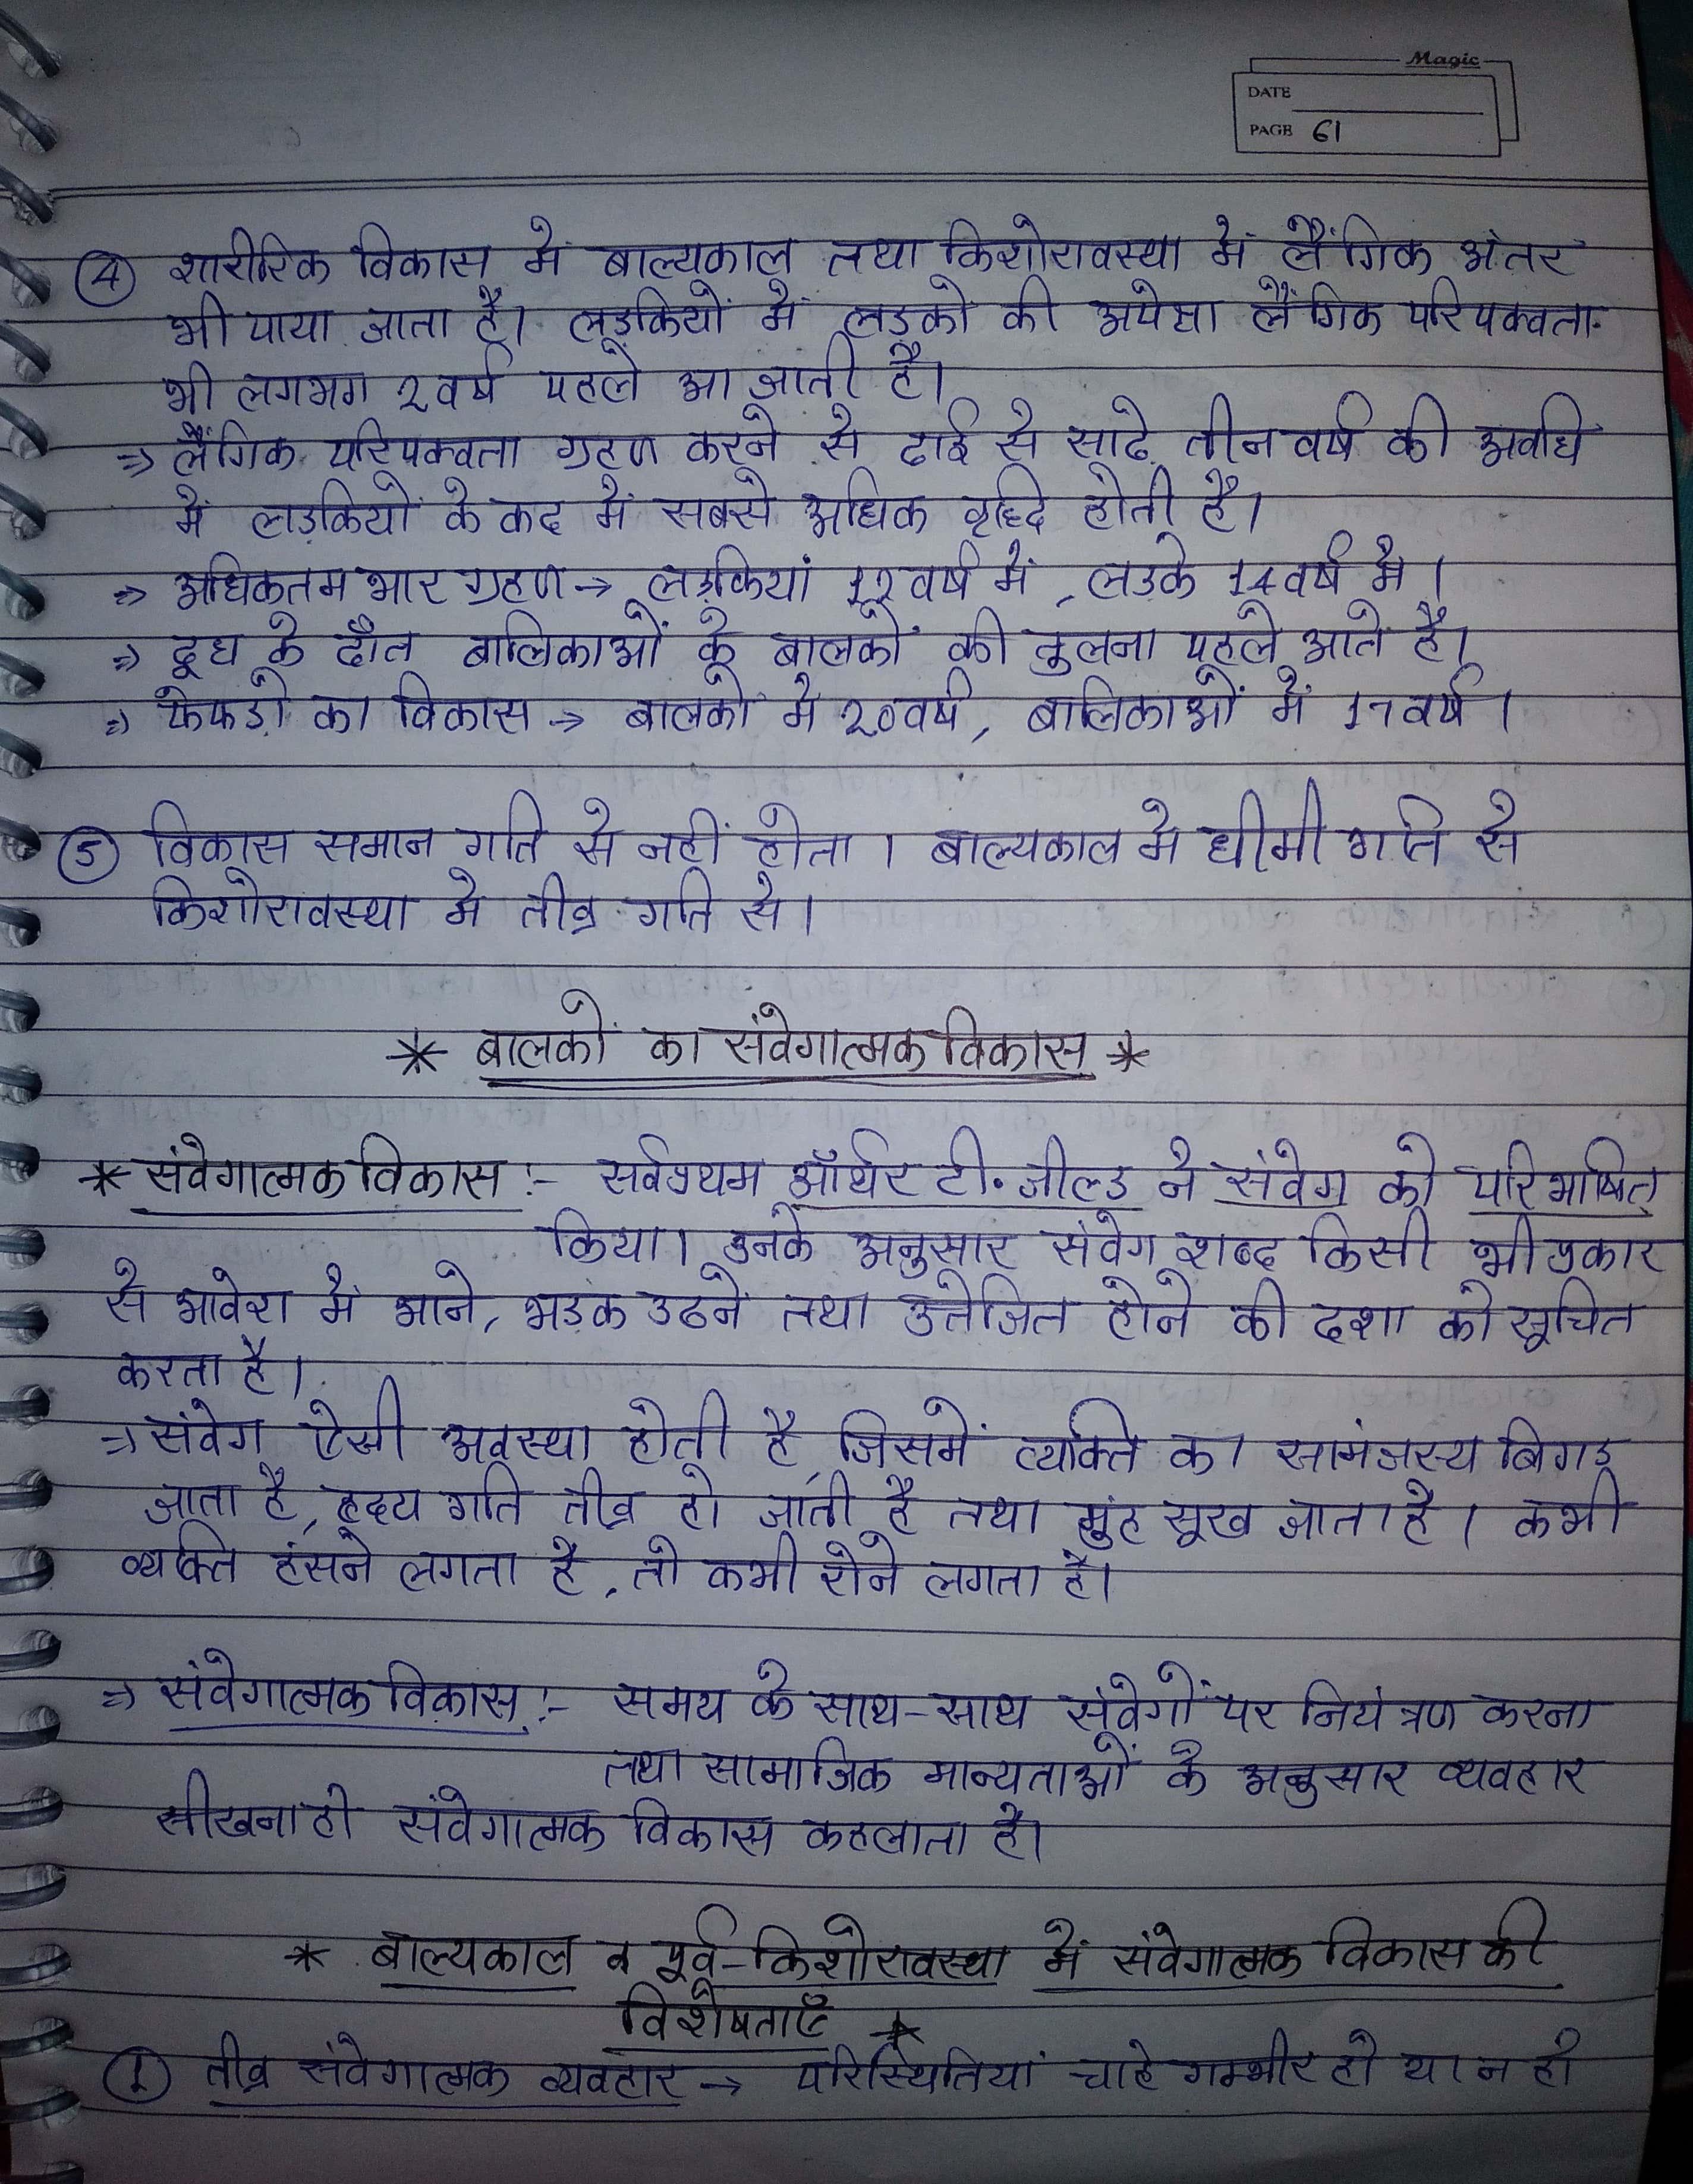 Magic
DATE
PAGE 61
④ शारीरिक विकास में बाल्यकाल तथा किशोरावस्था में लैंगिक अंतर
भी पाया जाता है। लड़कियों में लड़को की अपेक्षा लैंगिक परिपक्वता
भी लगभग 2 वर्ष पहले आ जाती है।
⇒ लैंगिक परिपक्वता ग्रहण करने से ढाई से साढे तीन वर्ष की अवधि
में लड़कियों के कद में सबसे अधिक वृद्धि होती है।
⇒ अधिकतम भार ग्रहण → लड़कियां 12 वर्ष में, लडके 14 वर्ष में।
⇒ दूध के दाँत बालिकाओं के बालकों की तुलना पहले आते है।
⇒ फेफडो का विकास → बालकों में 20 वर्ष, बालिकाओं में 17 वर्ष।
⑤ विकास समान गति से नहीं होता। बाल्यकाल मे धीमी गति से
किशोरावस्था मे तीव्र गति से।
* बालकों का संवेगात्मक विकास *
* संवेगात्मक विकास :- सर्वप्रथम ऑर्थर टी. जील्ड ने संवेग को परिभाषित
किया। उनके अनुसार संवेग शब्द किसी भी प्रकार
से आवेश में आने, भडक उठने तथा उत्तेजित होने की दशा को सूचित
करता है।
⇒ संवेग ऐसी अवस्था होती है, जिसमें व्यक्ति का सामंजस्य बिगड
जाता है, हृदय गति तीव्र हो जाती है तथा मुंह सूख जाता है। कभी
व्यक्ति हंसने लगता है, तो कभी रोने लगता है।
⇒ संवेगात्मक विकास :- समय के साथ-साथ संवेगों पर नियंत्रण करना
तथा सामाजिक मान्यताओं के अनुसार व्यवहार
सीखना ही संवेगात्मक विकास कहलाता है।
* बाल्यकाल व पूर्व-किशोरावस्था में संवेगात्मक विकास की
विशेषताएँ *
① तीव्र संवेगात्मक व्यवहार → परिस्थितियां चाहे गम्भीर हो या न हो